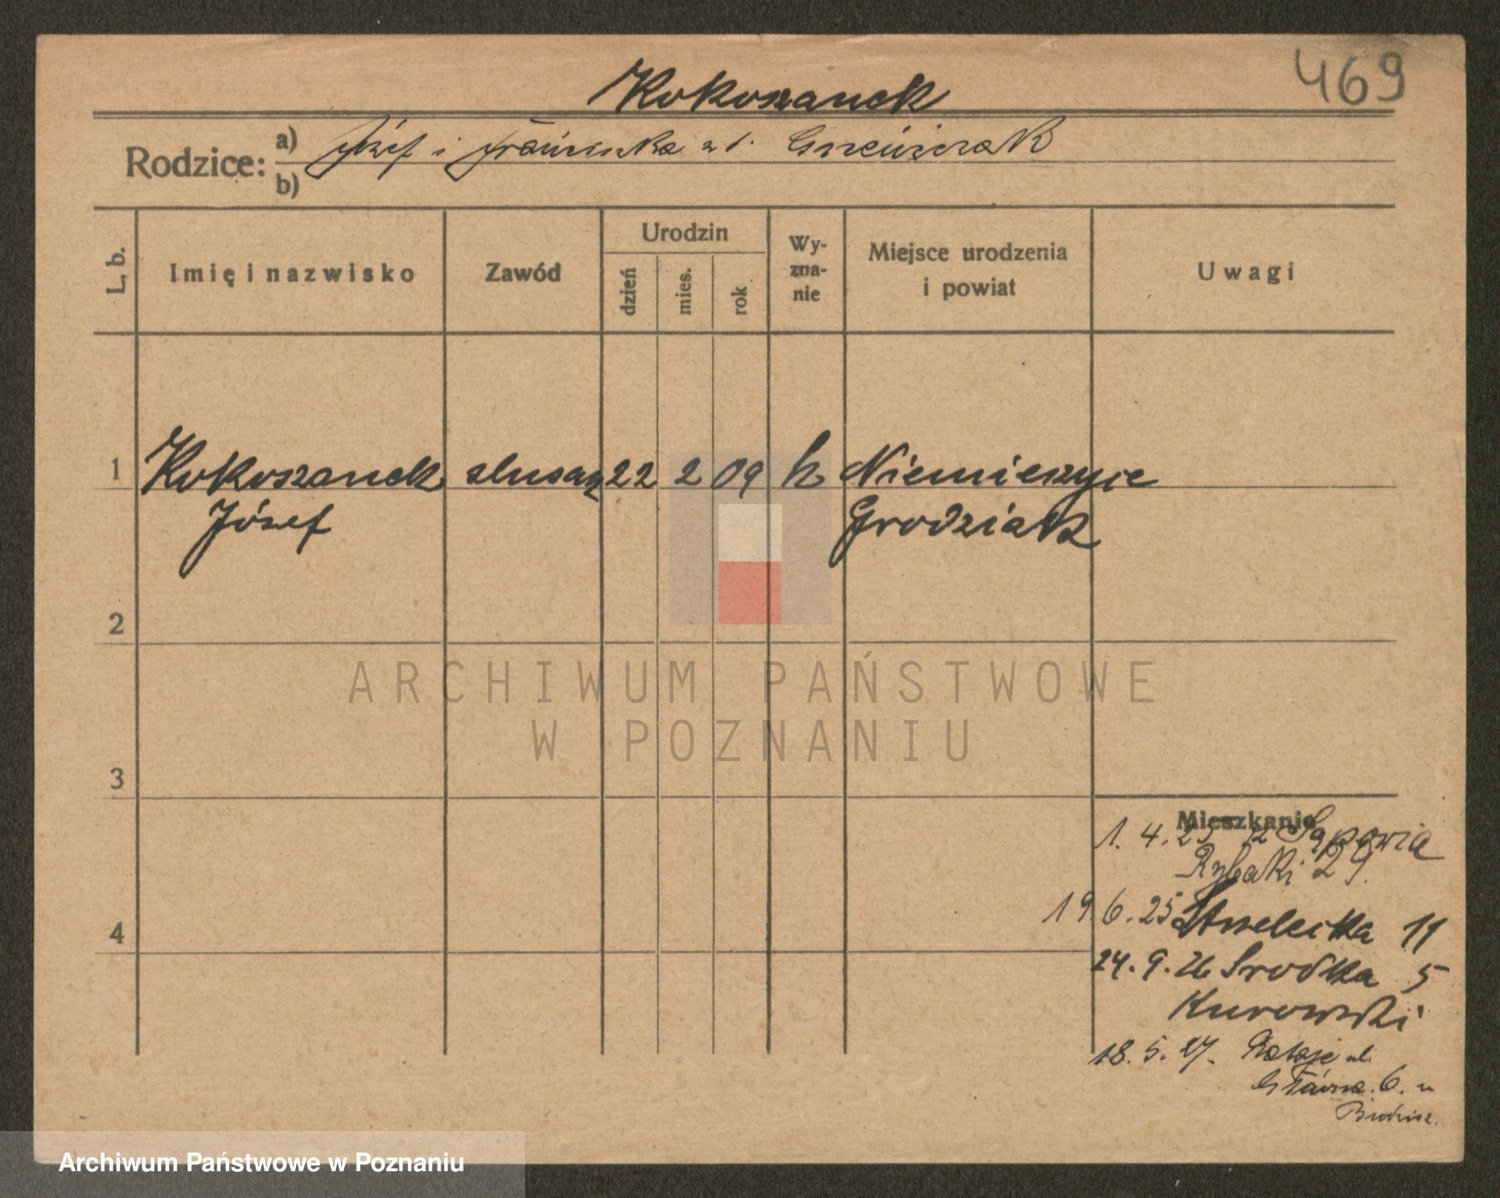 469
Kokoszanek
Rodzice: a) Józef i Franciszka z d.
b)
L. b. Imię i nazwisko Zawód Urodzin dzień mies. rok Wyznanie Miejsce urodzenia i powiat Uwagi
1 Kokoszanek slusarz 22 2 09 k Niemieszyce
Józef Grodziak
2
3
4
Mieszkanie
1. 4. 25 z Sąpowia
Rybaki 29.
19 6. 25 Strzelecka 11
24. 9. 26 Srodka 5
Kurowski
18. 5. 27. Rataje ul.
Główna 6. u
ARCHIWUM PAŃSTWOWE
W POZNANIU
Archiwum Państwowe w Poznaniu